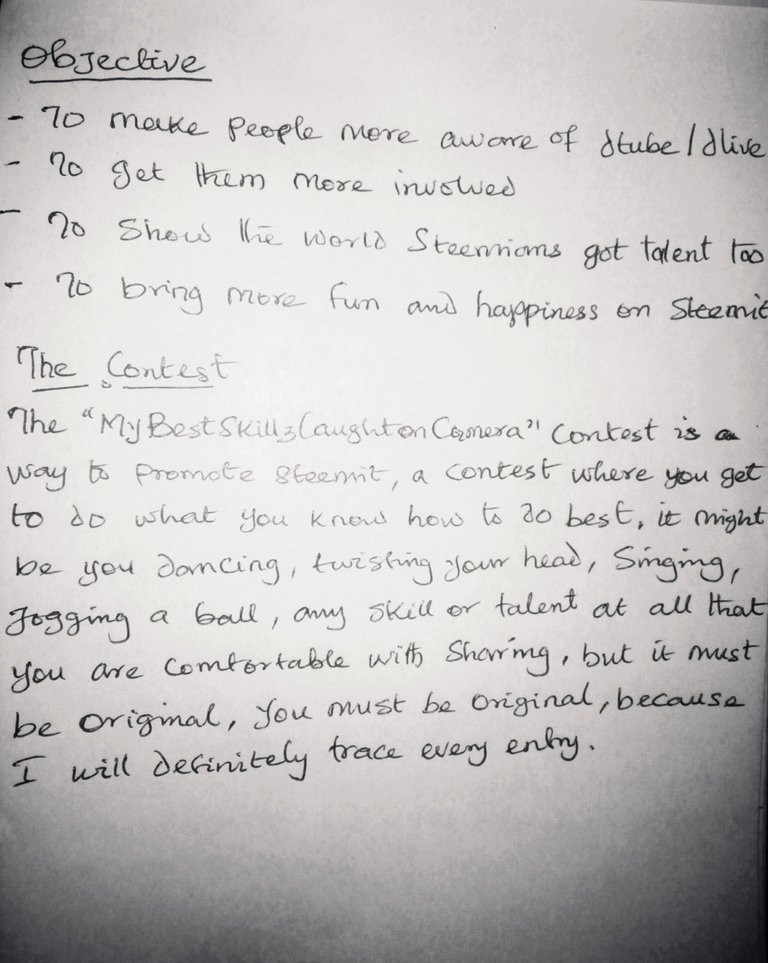 Objective
- To make people more aware of dtube/dlive
- To get them more involved
- To show the world Steemians got talent too
- To bring more fun and happiness on Steemit
The Contest
The "MyBestSkillzCaughtonCamera" contest is a
way to promote steemit, a contest where you get
to do what you know how to do best, it might
be you dancing, twisting your head, Singing,
Jogging a ball, any skill or talent at all that
you are comfortable with sharing, but it must
be original, you must be original, because
I will definitely trace every entry.